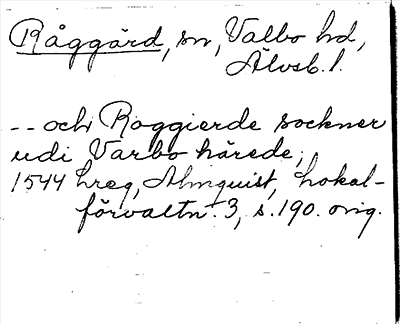 Råggärd, sn, Valbo hd,
Älvsb. l.
-- och Roggierde sockner
udi Varbo härede,
1544 hreg, Almquist, Lokal-
förvaltn. 3, s. 190. orig.